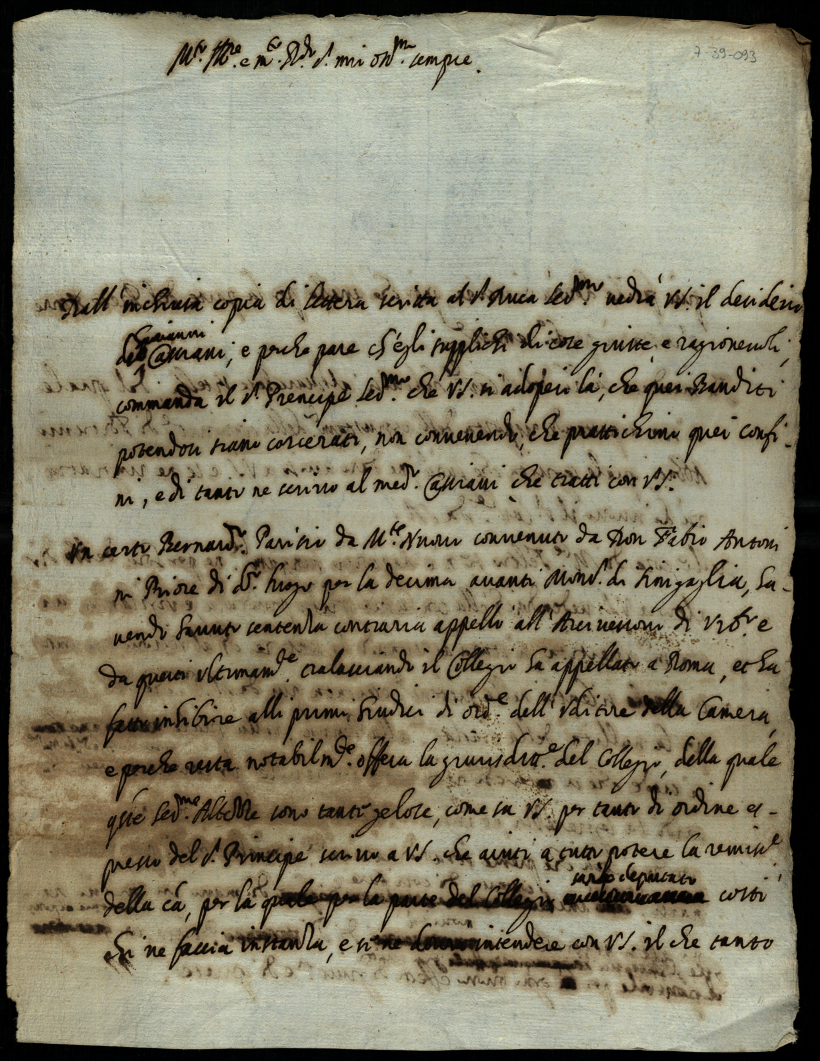 7-39-093
M.to Ill.re e m.to R.do S.r mio oss.mo sempre.
Dall'inchiusa copia di lettera scritta al S.r Duca Ser.mo vedrà VS. il desiderio
del Cattani, e perche pare ch'egli supplichi di cose giuste, e ragionevoli,
commanda il S.r Prencipe Ser.mo che VS. si adoperi là, che quei Banditi
potendosi siano carcerati, non convenendo, che prattichino quei confi-
ni, e di tanto ne scrivo al med.o Cattani che tratti con VS.
Un certo Bernard.o Parisii da M.te Nuovo convenuto da Don Fabio Antoni
ni Priore di d.o luogo per la decima avanti Mons.r di Sinigaglia, ha-
vendo havuto sentenza contraria appellò all'Arcivescovo di Urb.o e
da questi ultimam.te tralasciando il Collegio ha appellato a Roma, et ha
fatto inhibire alli primi Giudici di ord.e dell'Uditore della Camera,
e perche resta notabilm.te offesa la giurisditt.e del Collegio, della quale
q.ste Ser.me Altezze sono tanto gelose, come sa VS. per tanto di ordine es-
presso del S.r Principe scrivo a VS. che aiuti a tutto potere la remiss.e
della cã, per la quale per la parte del Collegio
sarà deputato
costì
chi ne faccia instanza, e si intendere con VS. il che tanto